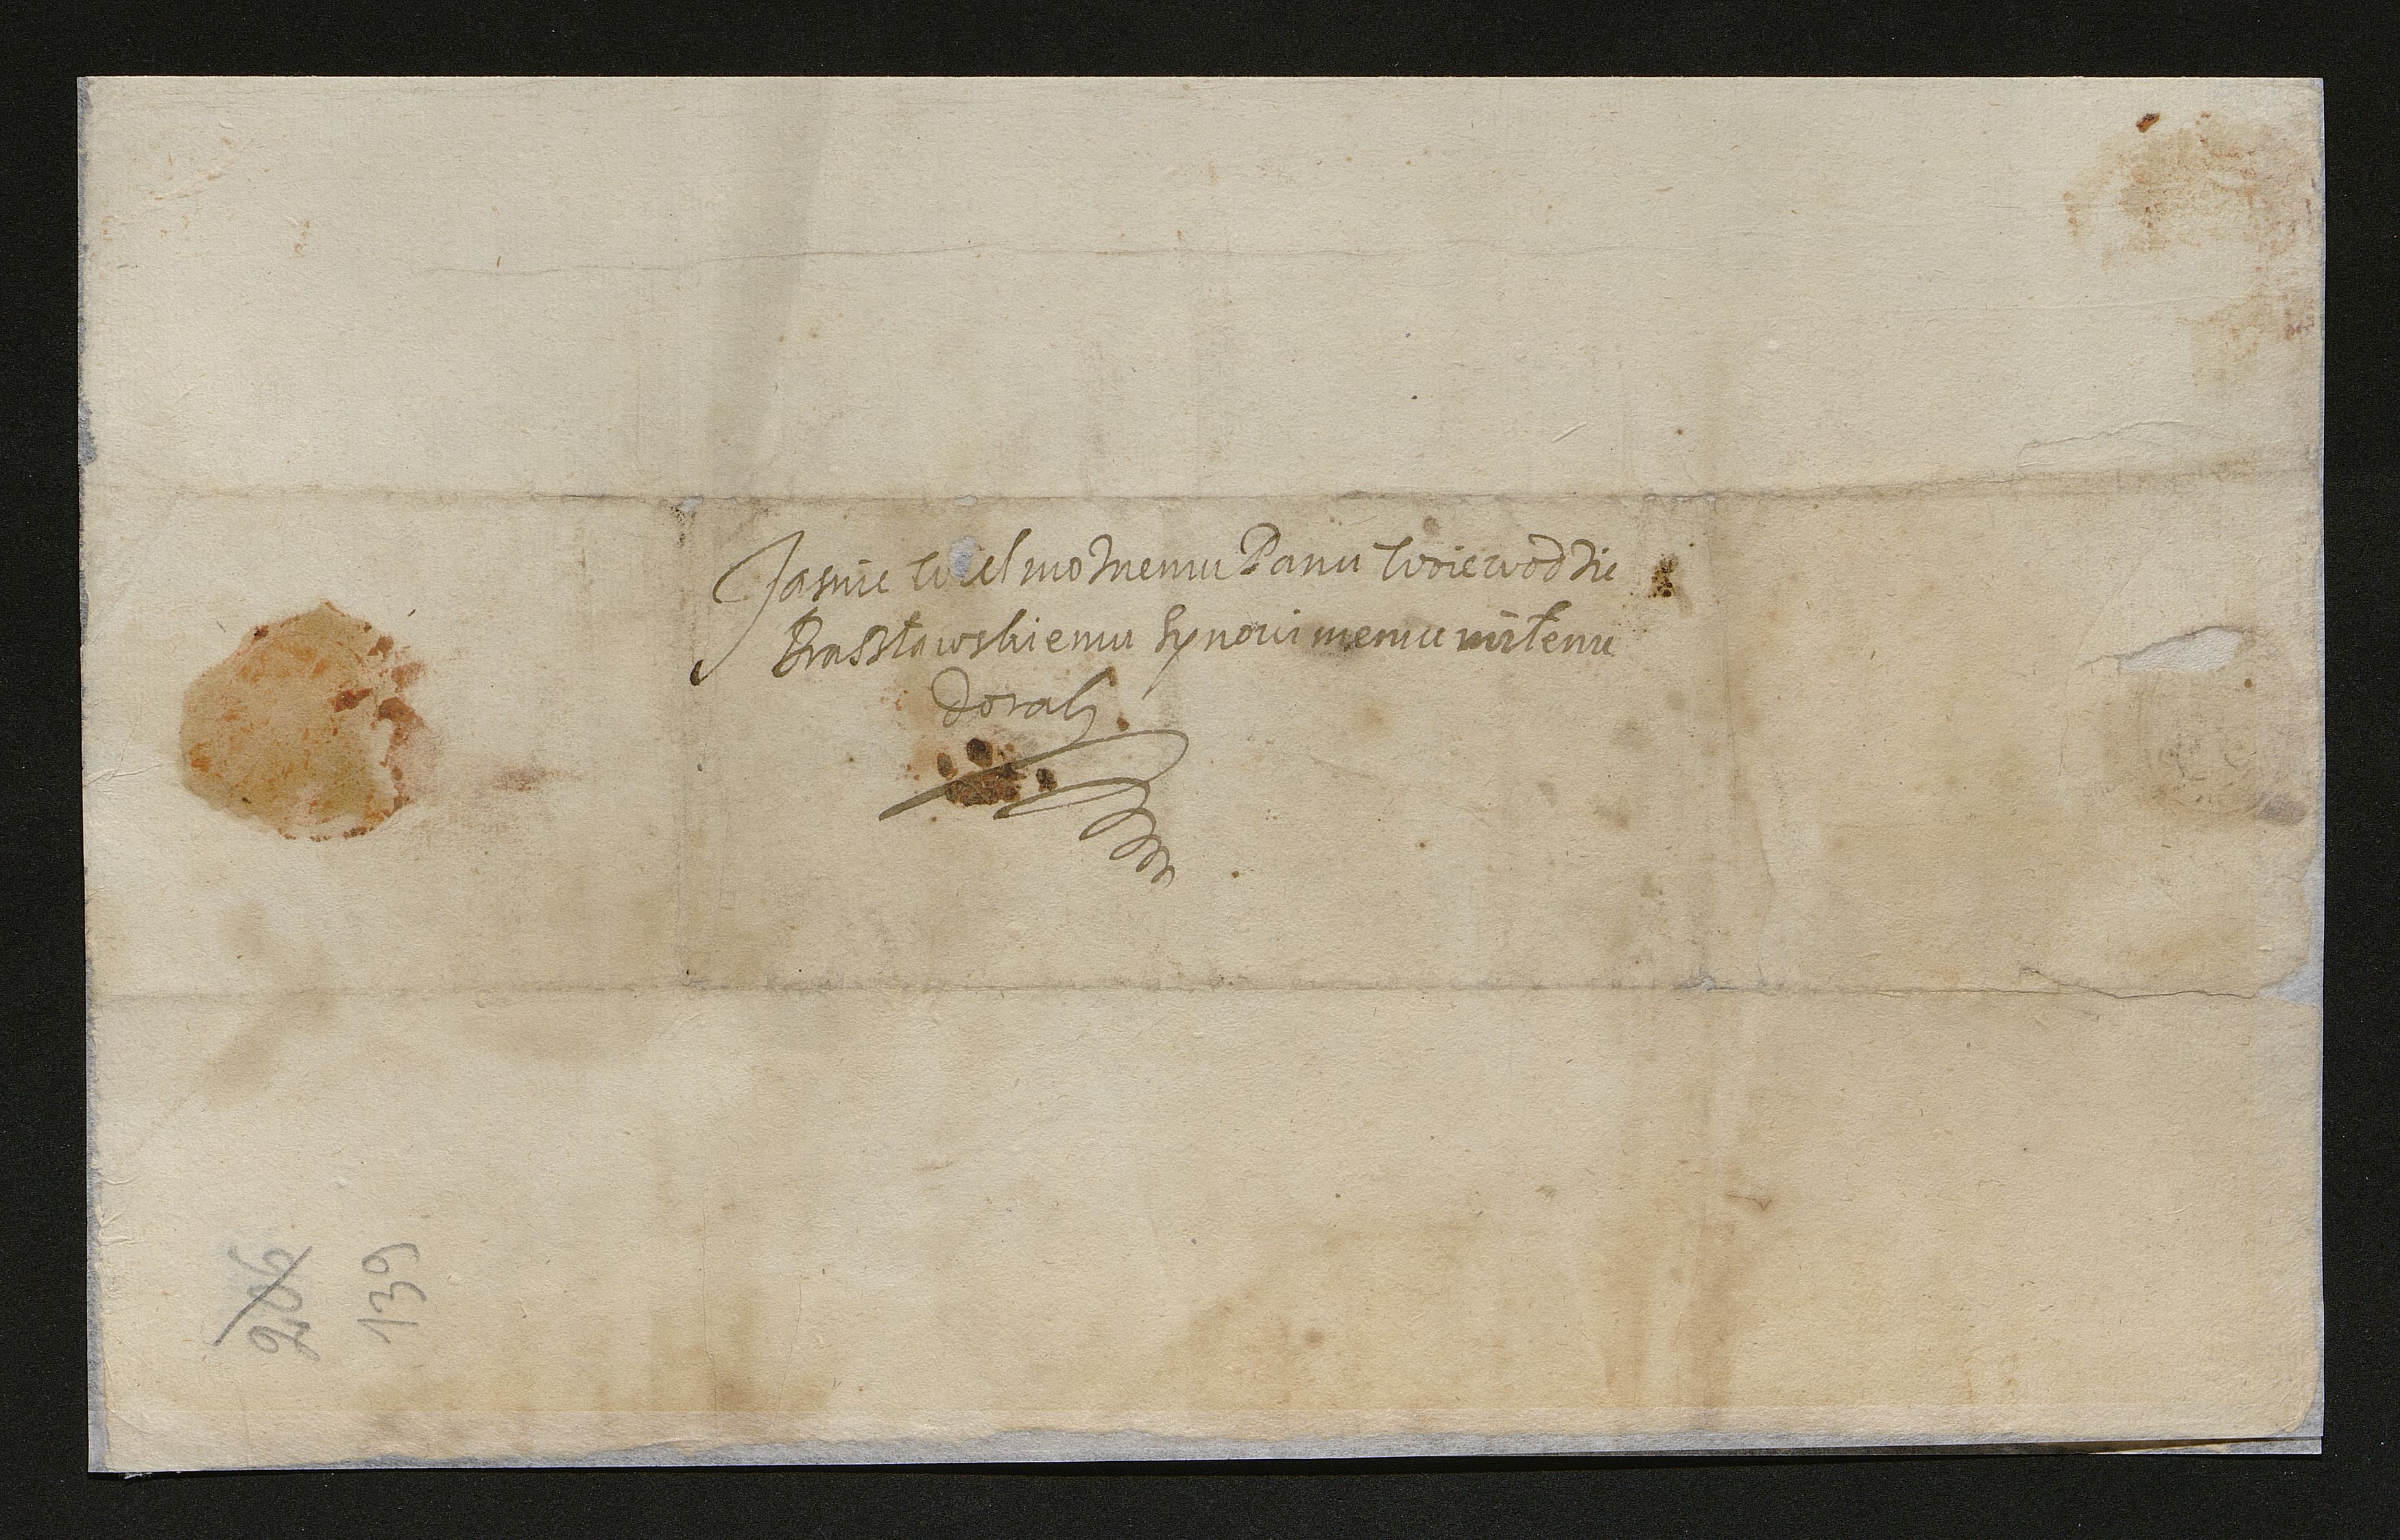 Jasnie Wielmoznemu Panu Woiewodzie
Brasławskiemu Synowi memu miłemu
dorąk
206
139